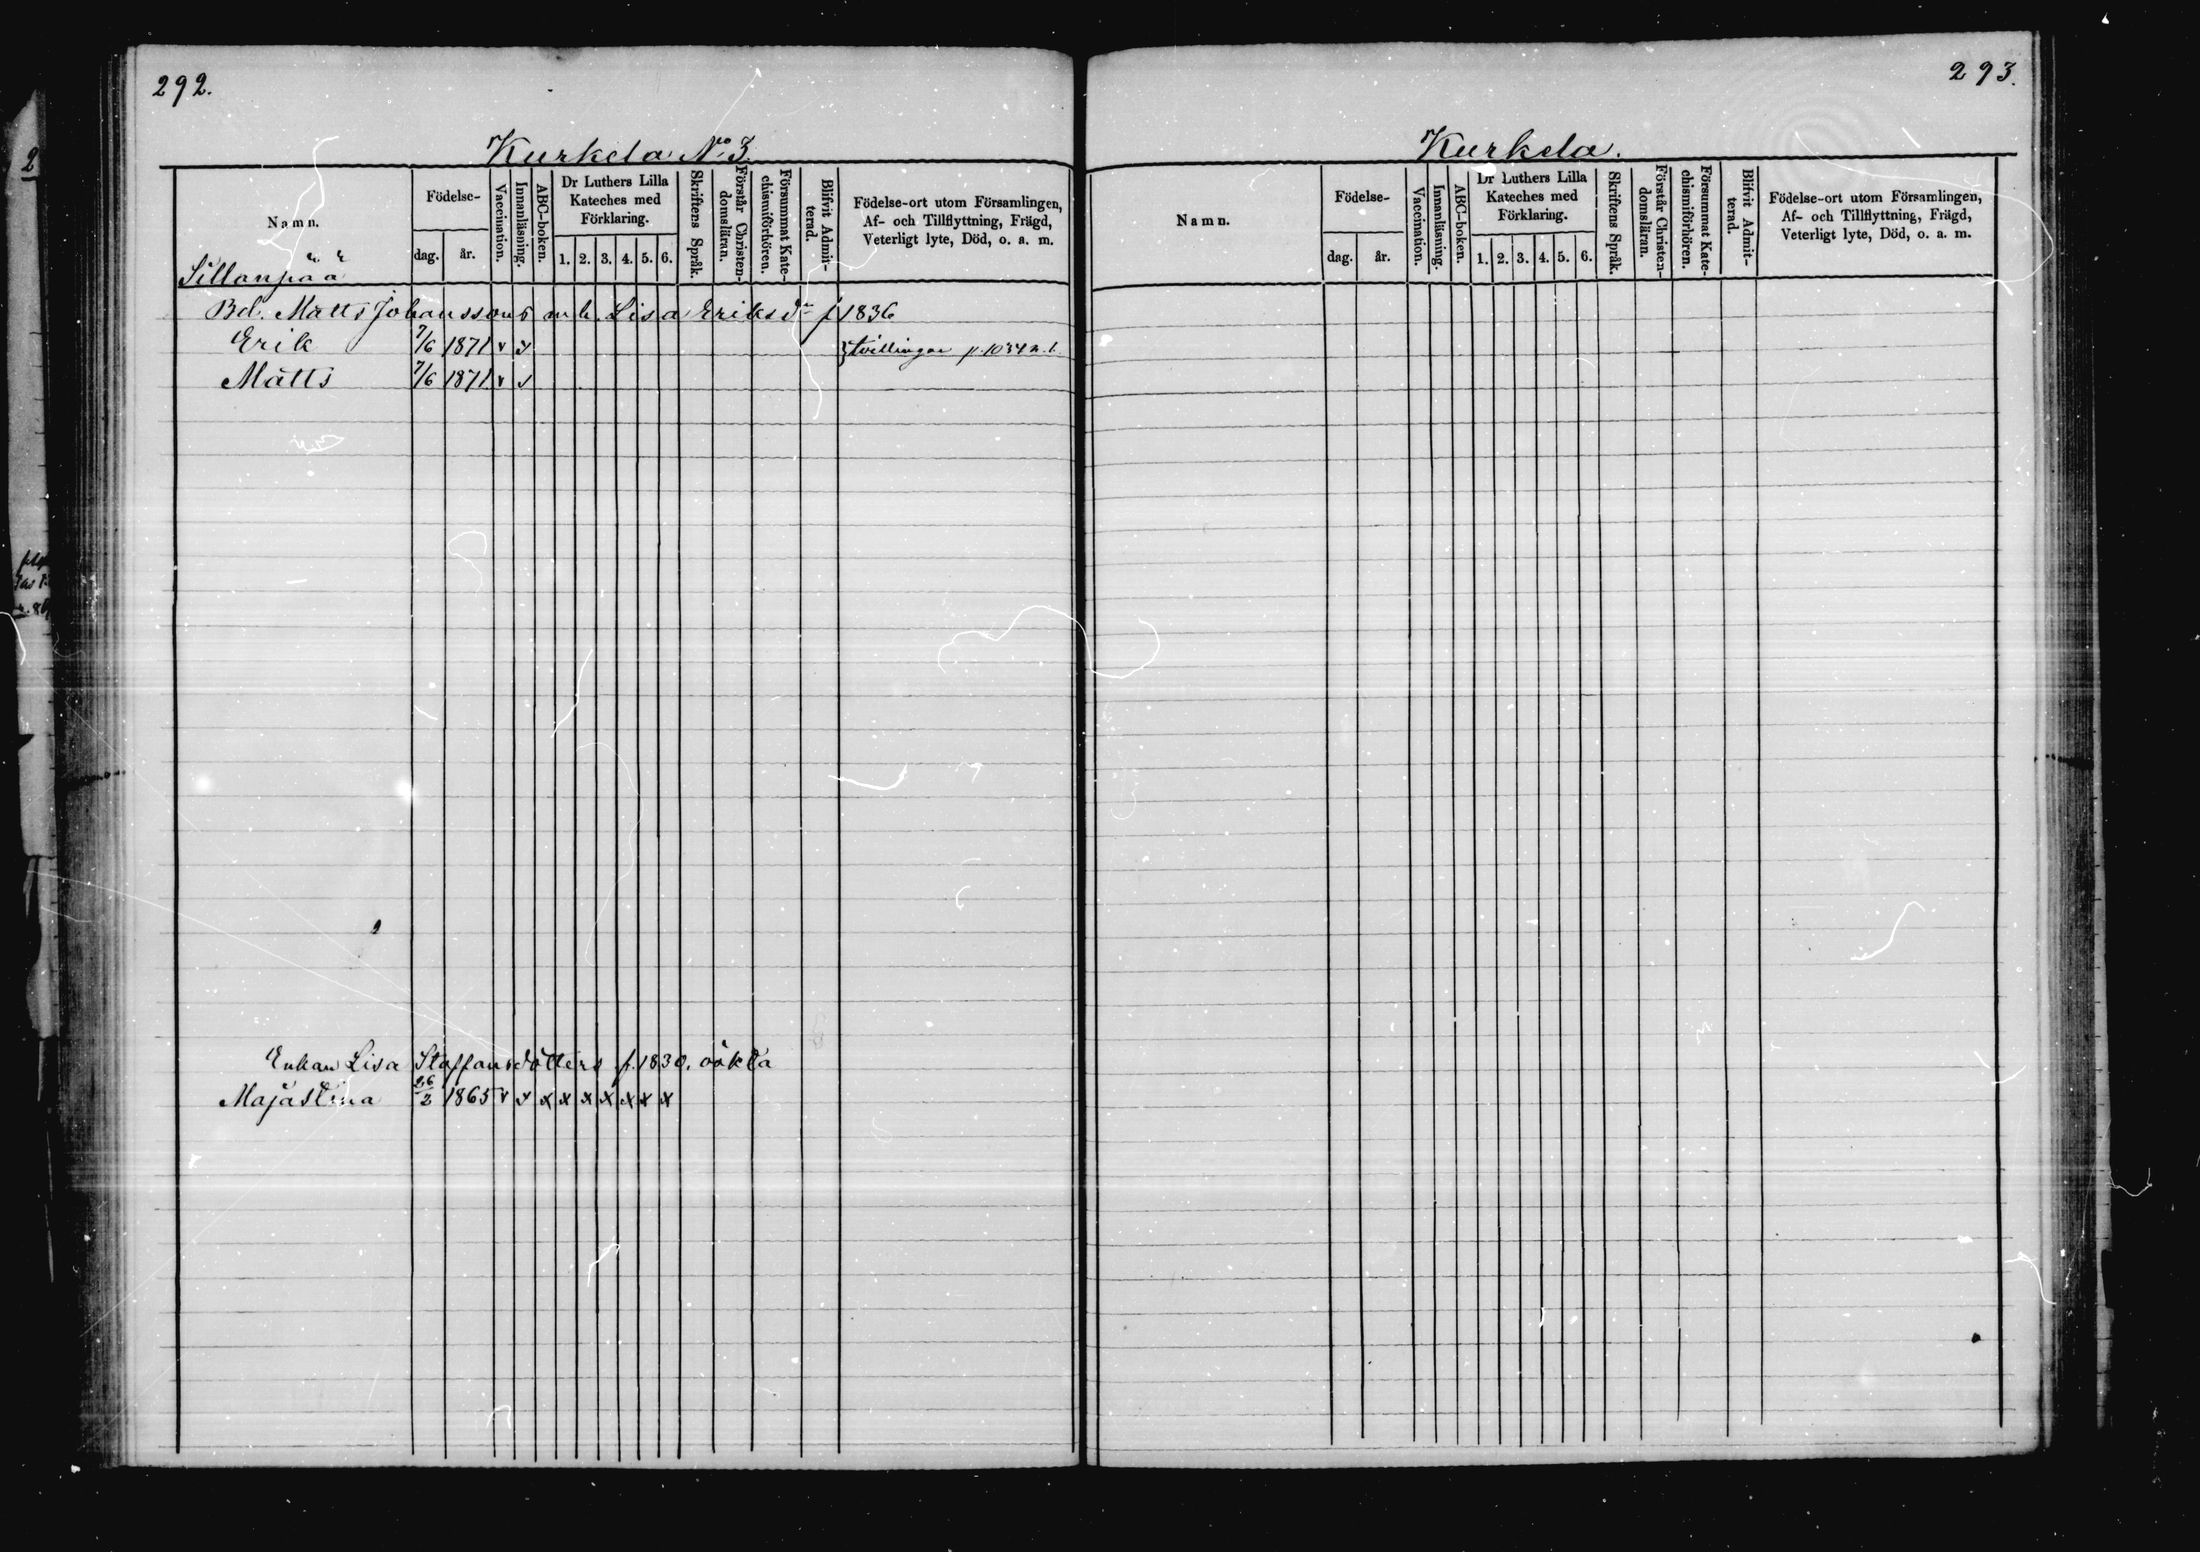 292.
Kurkela No 3.
Namn.
Födelse-
dag. år.
Vaccination.
Innanläsning.
ABC-boken.
Dr Luthers Lilla Kateches med Förklaring.
1. 2. 3. 4. 5. 6.
Skriftens Språk.
Förstår Christendomsläran.
Försummat Katechismiförhören.
Blifvit Admitterad.
Födelse-ort utom Församlingen,
Af- och Tillflyttning, Frägd,
Veterligt lyte, Död, o. a. m.
Sillanpää
Bd. Matts Johanssons m h. Lisa Eriksdr f 1836
Erik 7/6 1871 v v } tvillingar p. 1034 n. b.
Matts 7/6 1871 v v
Enkan Lisa Staffansdotters f. 1830. oäkta
Majastina 26/2 1865 v v x x x x x x x
293.
Kurkela.
Namn.
Födelse-
dag. år.
Vaccination.
Innanläsning.
ABC-boken.
Dr Luthers Lilla
Kateches med
Förklaring.
1. 2. 3. 4. 5. 6.
Skriftens Språk.
Förstår Christendomsläran.
Försummat Katechismiförhören.
Blifvit Admitterad.
Födelse-ort utom Församlingen,
Af- och Tillflyttning, Frägd,
Veterligt lyte, Död, o. a. m.